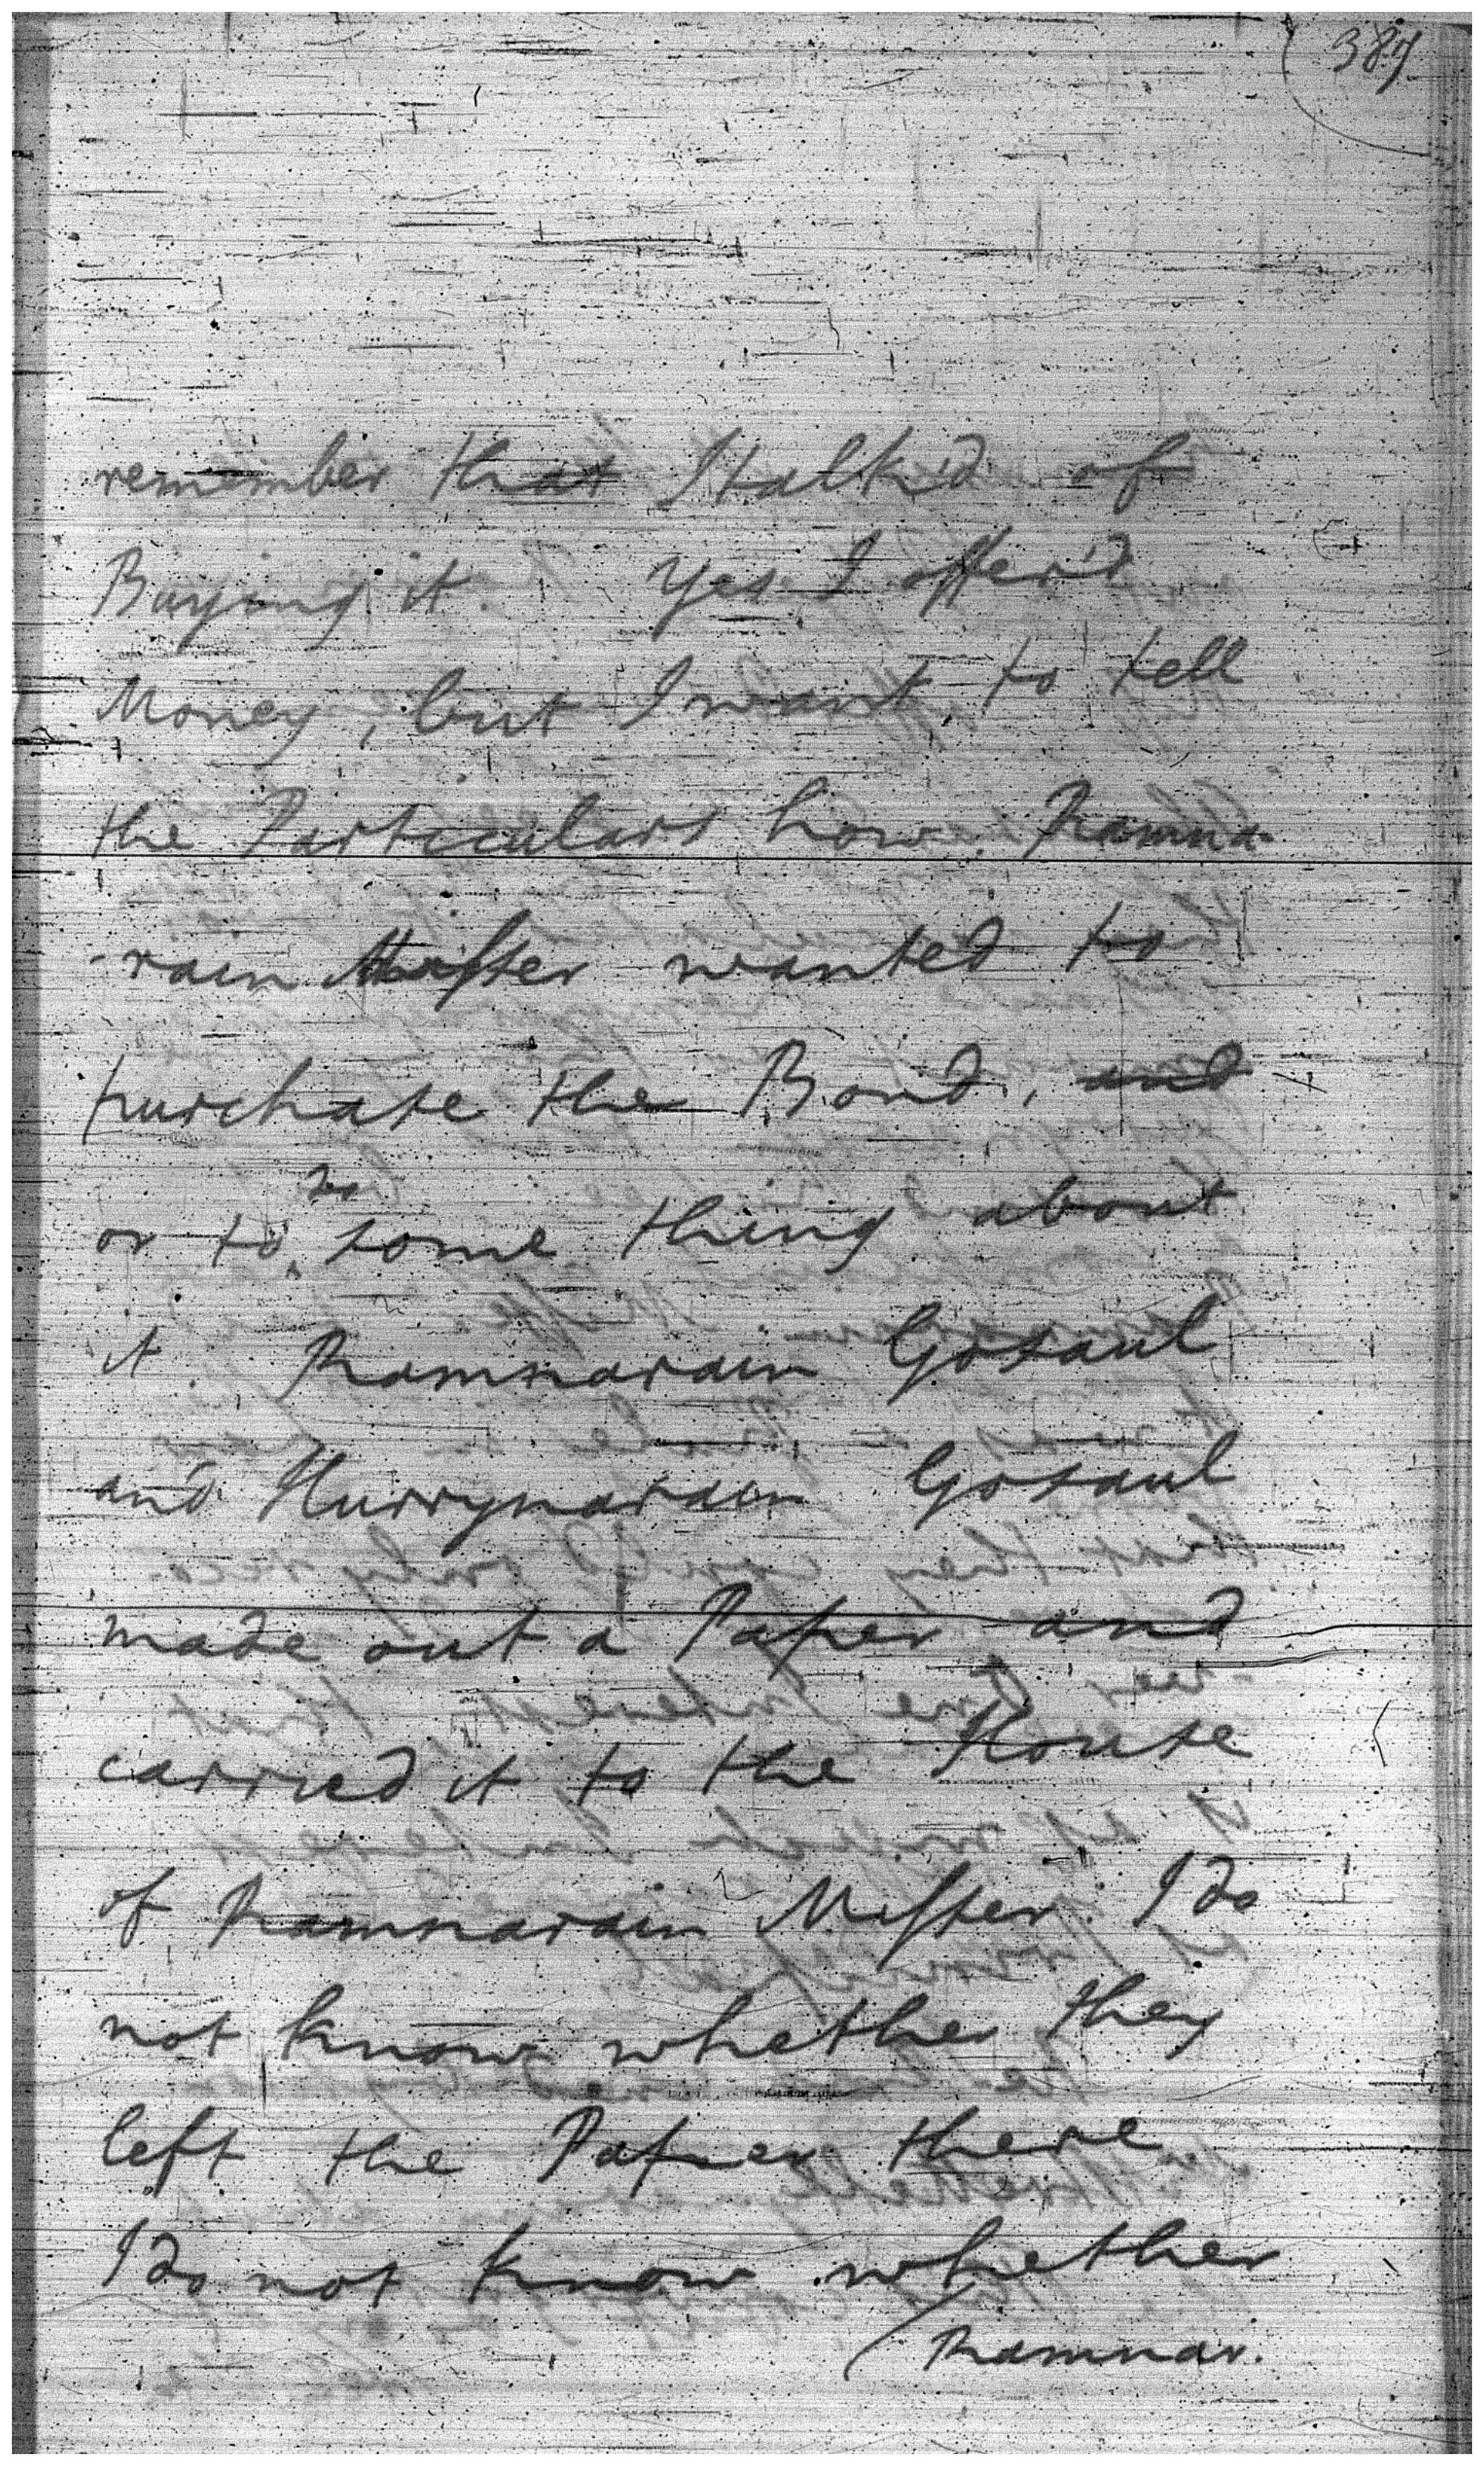 387
remember that I talk'd of
Buying it. Yes I offer'd
Money, but I want to tell
the Particulars how Ramna
-rain Misser wanted to
purchase the Bond, and
do
or to some thing about
it Ramnarain Gosaul
and Hurrynarain Gosaul
made out a Paper and
carried it to the House
of Ramnarain Misser. I do
not know whether they
left the Paper there
I do not know whether
Ramnar.